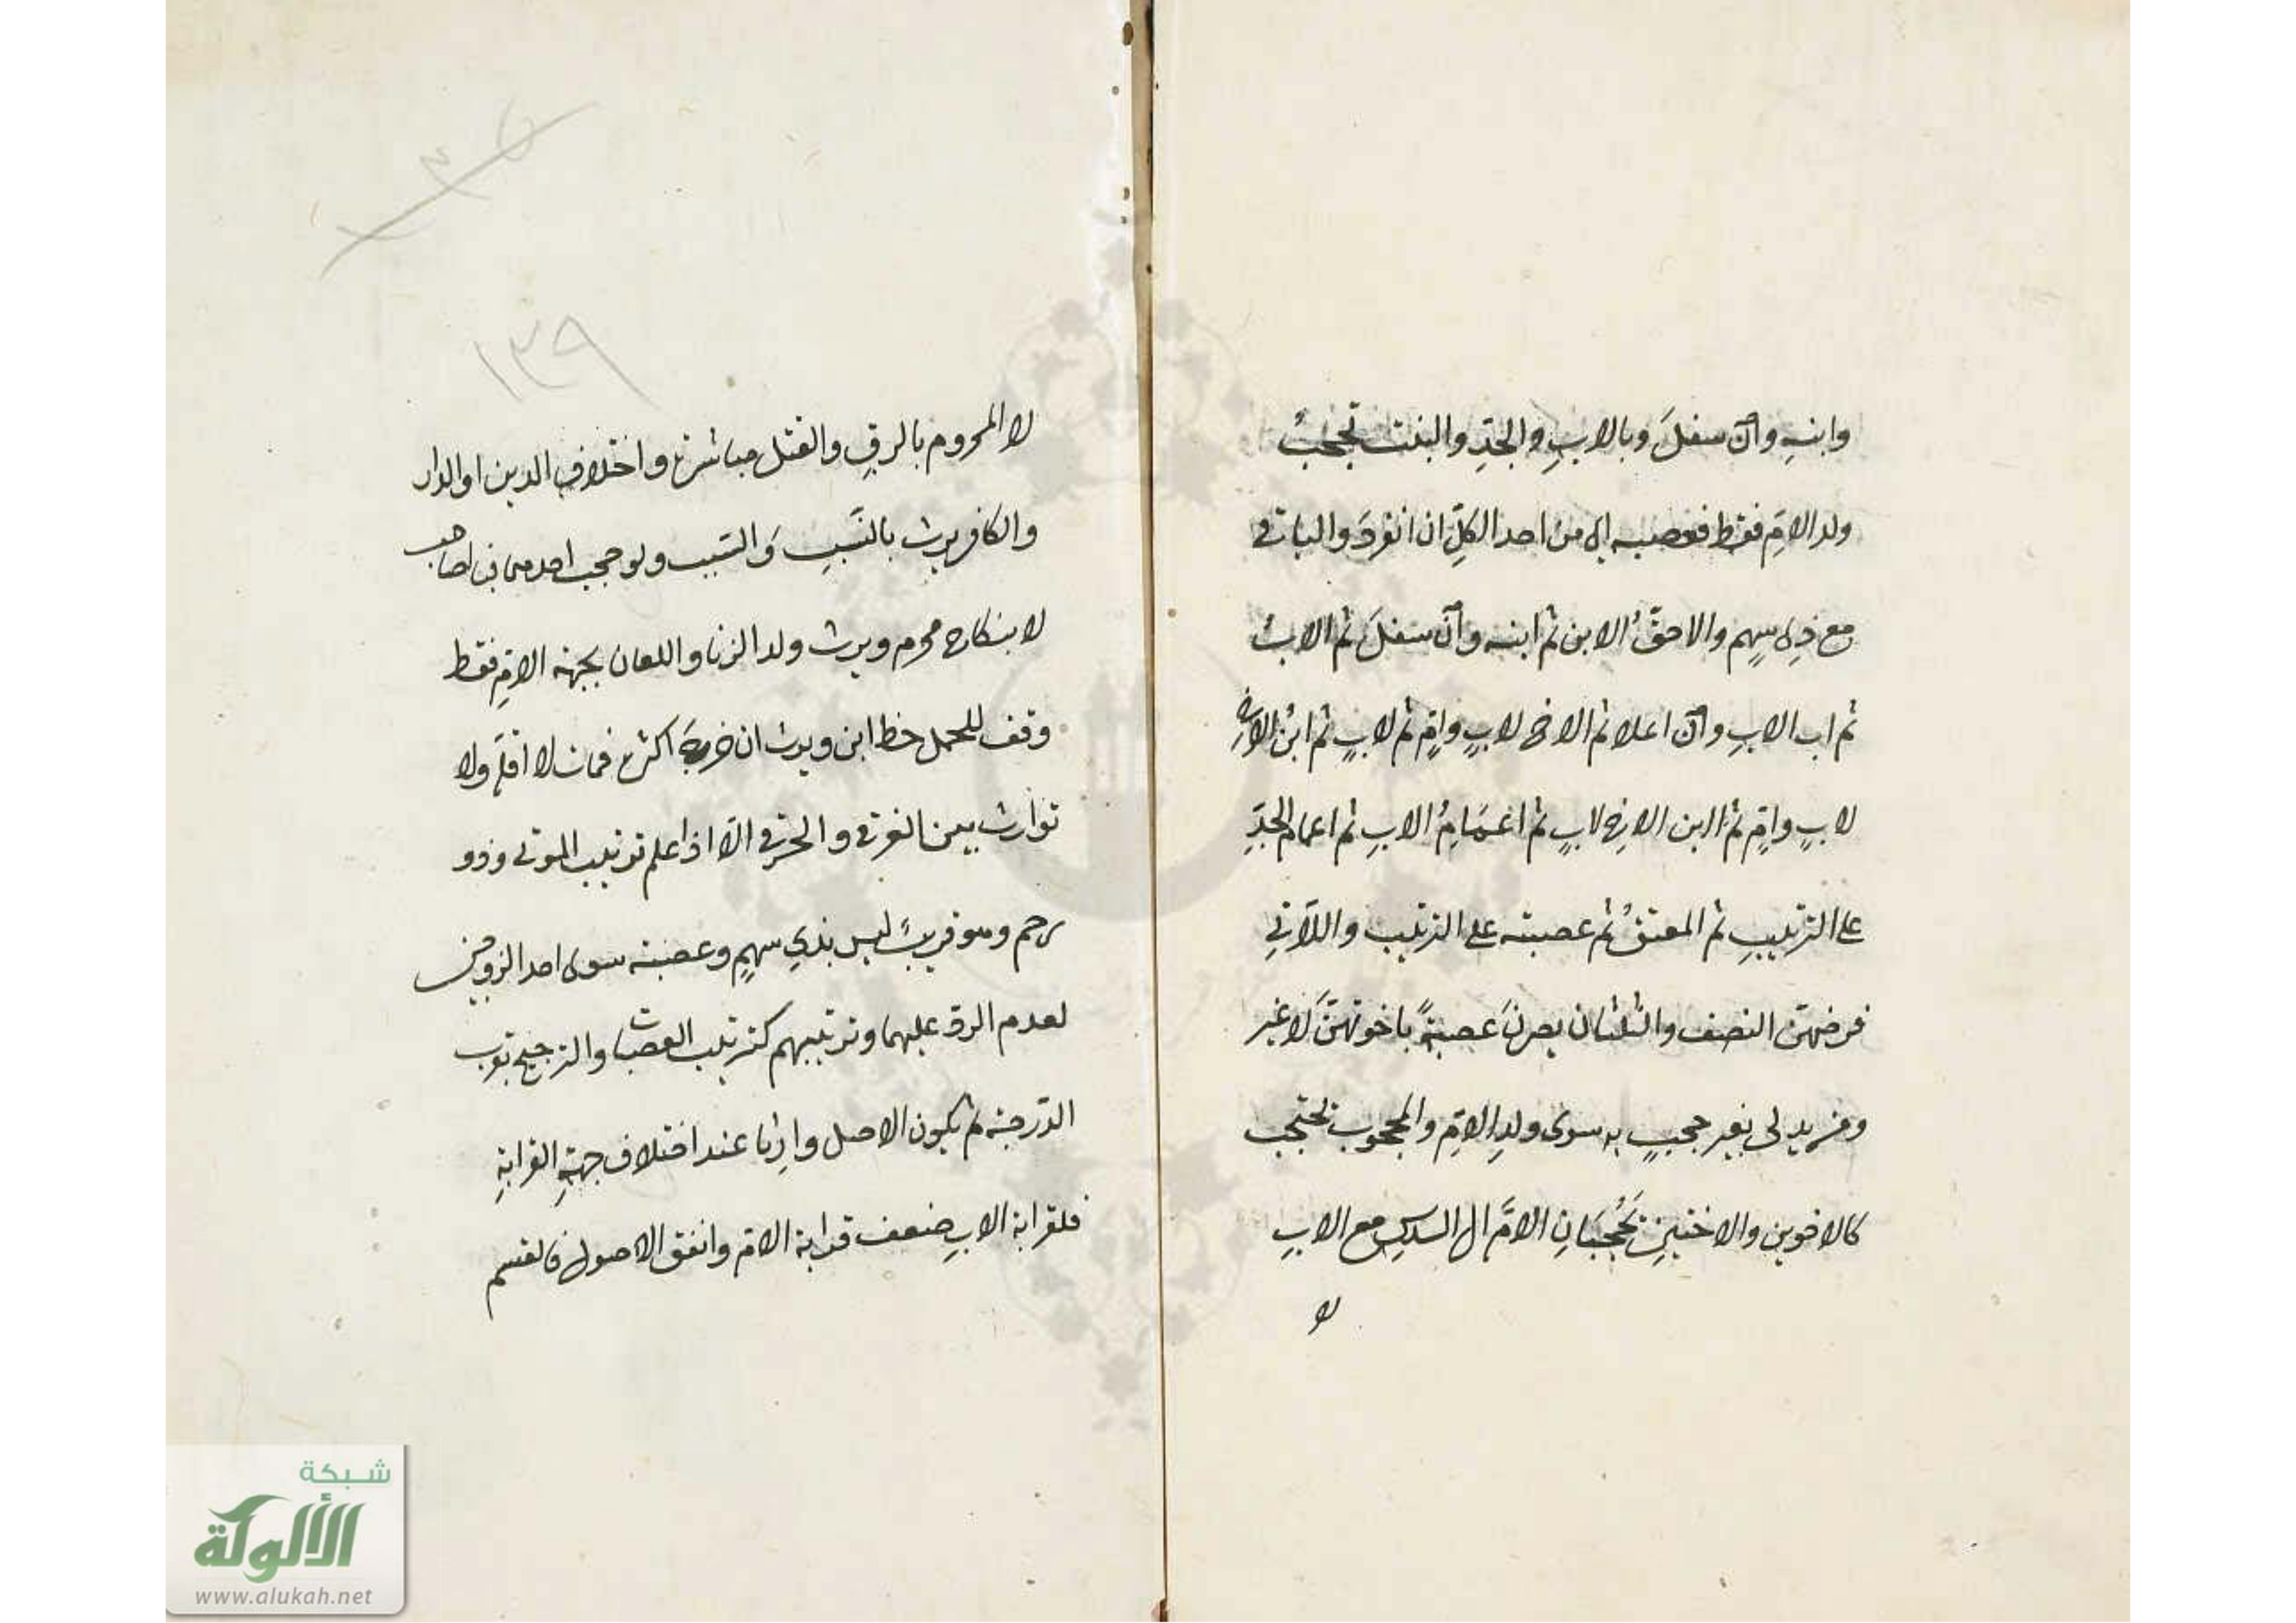 وابنهِ وان سفلَ وبالابِ والجدِّ والبنت تحجبُ
ولد الامِّ فقط فعصبه اي من اخذ الكلّ ان انفردَ والباقي
مع ذي سهمٍ والاحقُّ الابن ثم ابنه وان سفلَ ثم الابُ
ثم اب الابِ وان اعلا ثم الاخ لابٍ وامٍ ثم لابٍ ثم ابن الاخِ
لابٍ وامٍ ثم ابن الاخِ لابٍ ثم اعمامُ الابِ ثم اعمام الجدِّ
على الترتيبِ ثم المعتقُ ثم عصبته على الترتيب واللاتي
فرضهنّ النصف والثلثان يصرنَ عصبةً باخوتهنَّ لا غير
ومن يدلى بغير حجبٍ به سوى ولدِ الامِّ والمحجوب تحجب
كالاخوين والاختينِ تحجُبانِ الامَّ الى السدسِ مع الابِ
لا
١٣٩
لا المحروم بالرقِ والقتل مباشرة واختلافِ الدين او الدار
والكافر يرث بالنَّسبِ وَالسّبب ولو حجب احدهما فبالحاجب
لا بنكاح محرمٍ ويرث ولد الزنا واللعان بجهة الامِّ فقط
وقف للحمل حظ ابن ويرث ان خرجَ اكثره فمات لا اقلّه ولا
توارث بين الغرقى والحرقى الّا اذا علم ترتيب الموتى وذو
رحم وهو قريبٌ ليس بذي سهمٍ وعصبة سوى احد الزوجين
لعدم الردّ عليهما وترتيبهم كترتيب العصبات والترجيح بقرب
الدّرجة ثم بكون الاصل وارِثا عند اختلاف جهةِ القرابةِ
فلقرابة الابِ ضعف قرابة الامّ واتفق الاصول فالقسم
شبكة
الألوكة
www.alukah.net